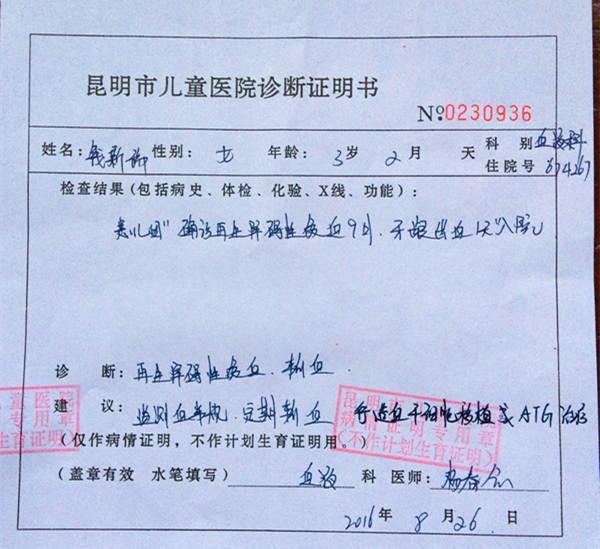 昆明市儿童医院诊断证明书
№0230936
姓名：钱新 性别：女 年龄：3岁2月 天 科别 血液科
住院号 674267
检查结果（包括病史、体检、化验、X线、功能）：
患儿因"确诊再生障碍性贫血9月，牙龈出血1天"入院
诊 断：再生障碍性贫血 输血
建 议：监测血常规，定期输血 行造血干细胞移植或ATG治疗
（仅作病情证明，不作计划生育证明用。）
（盖章有效 水笔填写） 血液 科 医师：杨春
2016年8月26日
童医院
专用章
育证明）
昆明市
病情证明专用章
（不作计划生育证明）